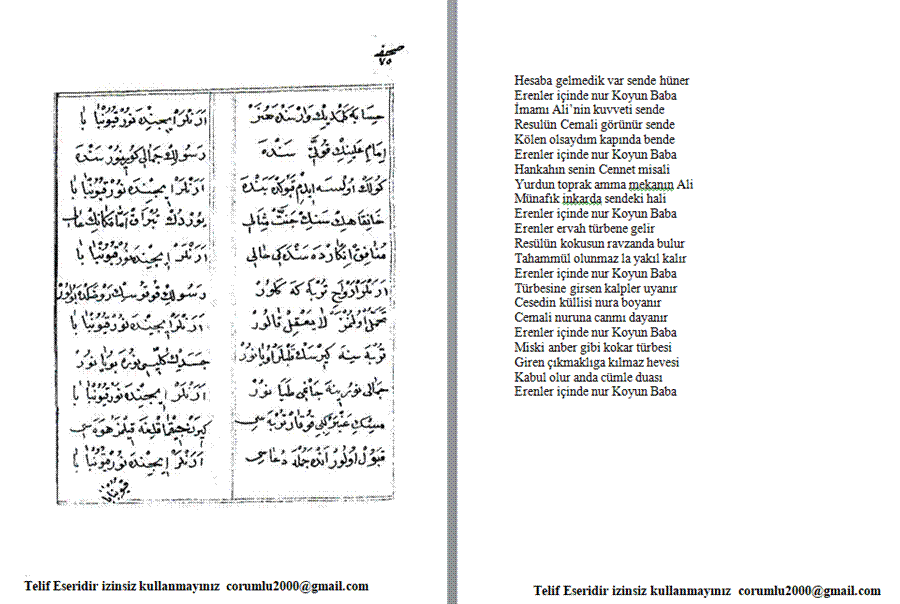 صحيفه
٧٥
حسابه كلمديك وارسنده هنر
ارنلر ايچنده نور قويون بابا
امام علينك قوتى سنده
رسولك جمالى كورينور سنده
كولك اولسه ايدم قپوكده بنده
ارنلر ايچنده نور قويون بابا
خانقاهك سنك جنت مثالى
يوردك تبراق اما مكانك عالى
منافق انكارده سنده كى حالى
ارنلر ايچنده نور قويون بابا
ارنلر ارواح تربه كه كلور
رسولك قوقوسك روضكده بولور
تحمل اولنمز لا يعقل قالور
ارنلر ايچنده نور قويون بابا
تربه سينه كيرسك قلبلر اويانور
جسدك كليسى نوره بويانور
جمالى نورينه جانمى طيانور
ارنلر ايچنده نور قويون بابا
مسك عنبر كبى قوقار تربه سى
كيرن چيقماقلغه قيلمز هوه سى
قبول اولور انده جمله دعاسى
ارنلر ايچنده نور قويون بابا
Telif Eseridir izinsiz kullanmayınız corumlu2000@gmail.com
Hesaba gelmedik var sende hüner
Erenler içinde nur Koyun Baba
İmamı Ali’nin kuvveti sende
Resulün Cemali görünür sende
Kölen olsaydım kapında bende
Erenler içinde nur Koyun Baba
Hankahın senin Cennet misali
Yurdun toprak amma mekanın Ali
Münafık inkarda sendeki hali
Erenler içinde nur Koyun Baba
Erenler ervah türbene gelir
Resülün kokusun ravzanda bulur
Tahammül olunmaz la yakıl kalır
Erenler içinde nur Koyun Baba
Türbesine girsen kalpler uyanır
Cesedin küllisi nura boyanır
Cemali nuruna canmı dayanır
Erenler içinde nur Koyun Baba
Miski anber gibi kokar türbesi
Giren çıkmaklıga kılmaz hevesi
Kabul olur anda cümle duası
Erenler içinde nur Koyun Baba
Telif Eseridir izinsiz kullanmayınız corumlu2000@gmail.com